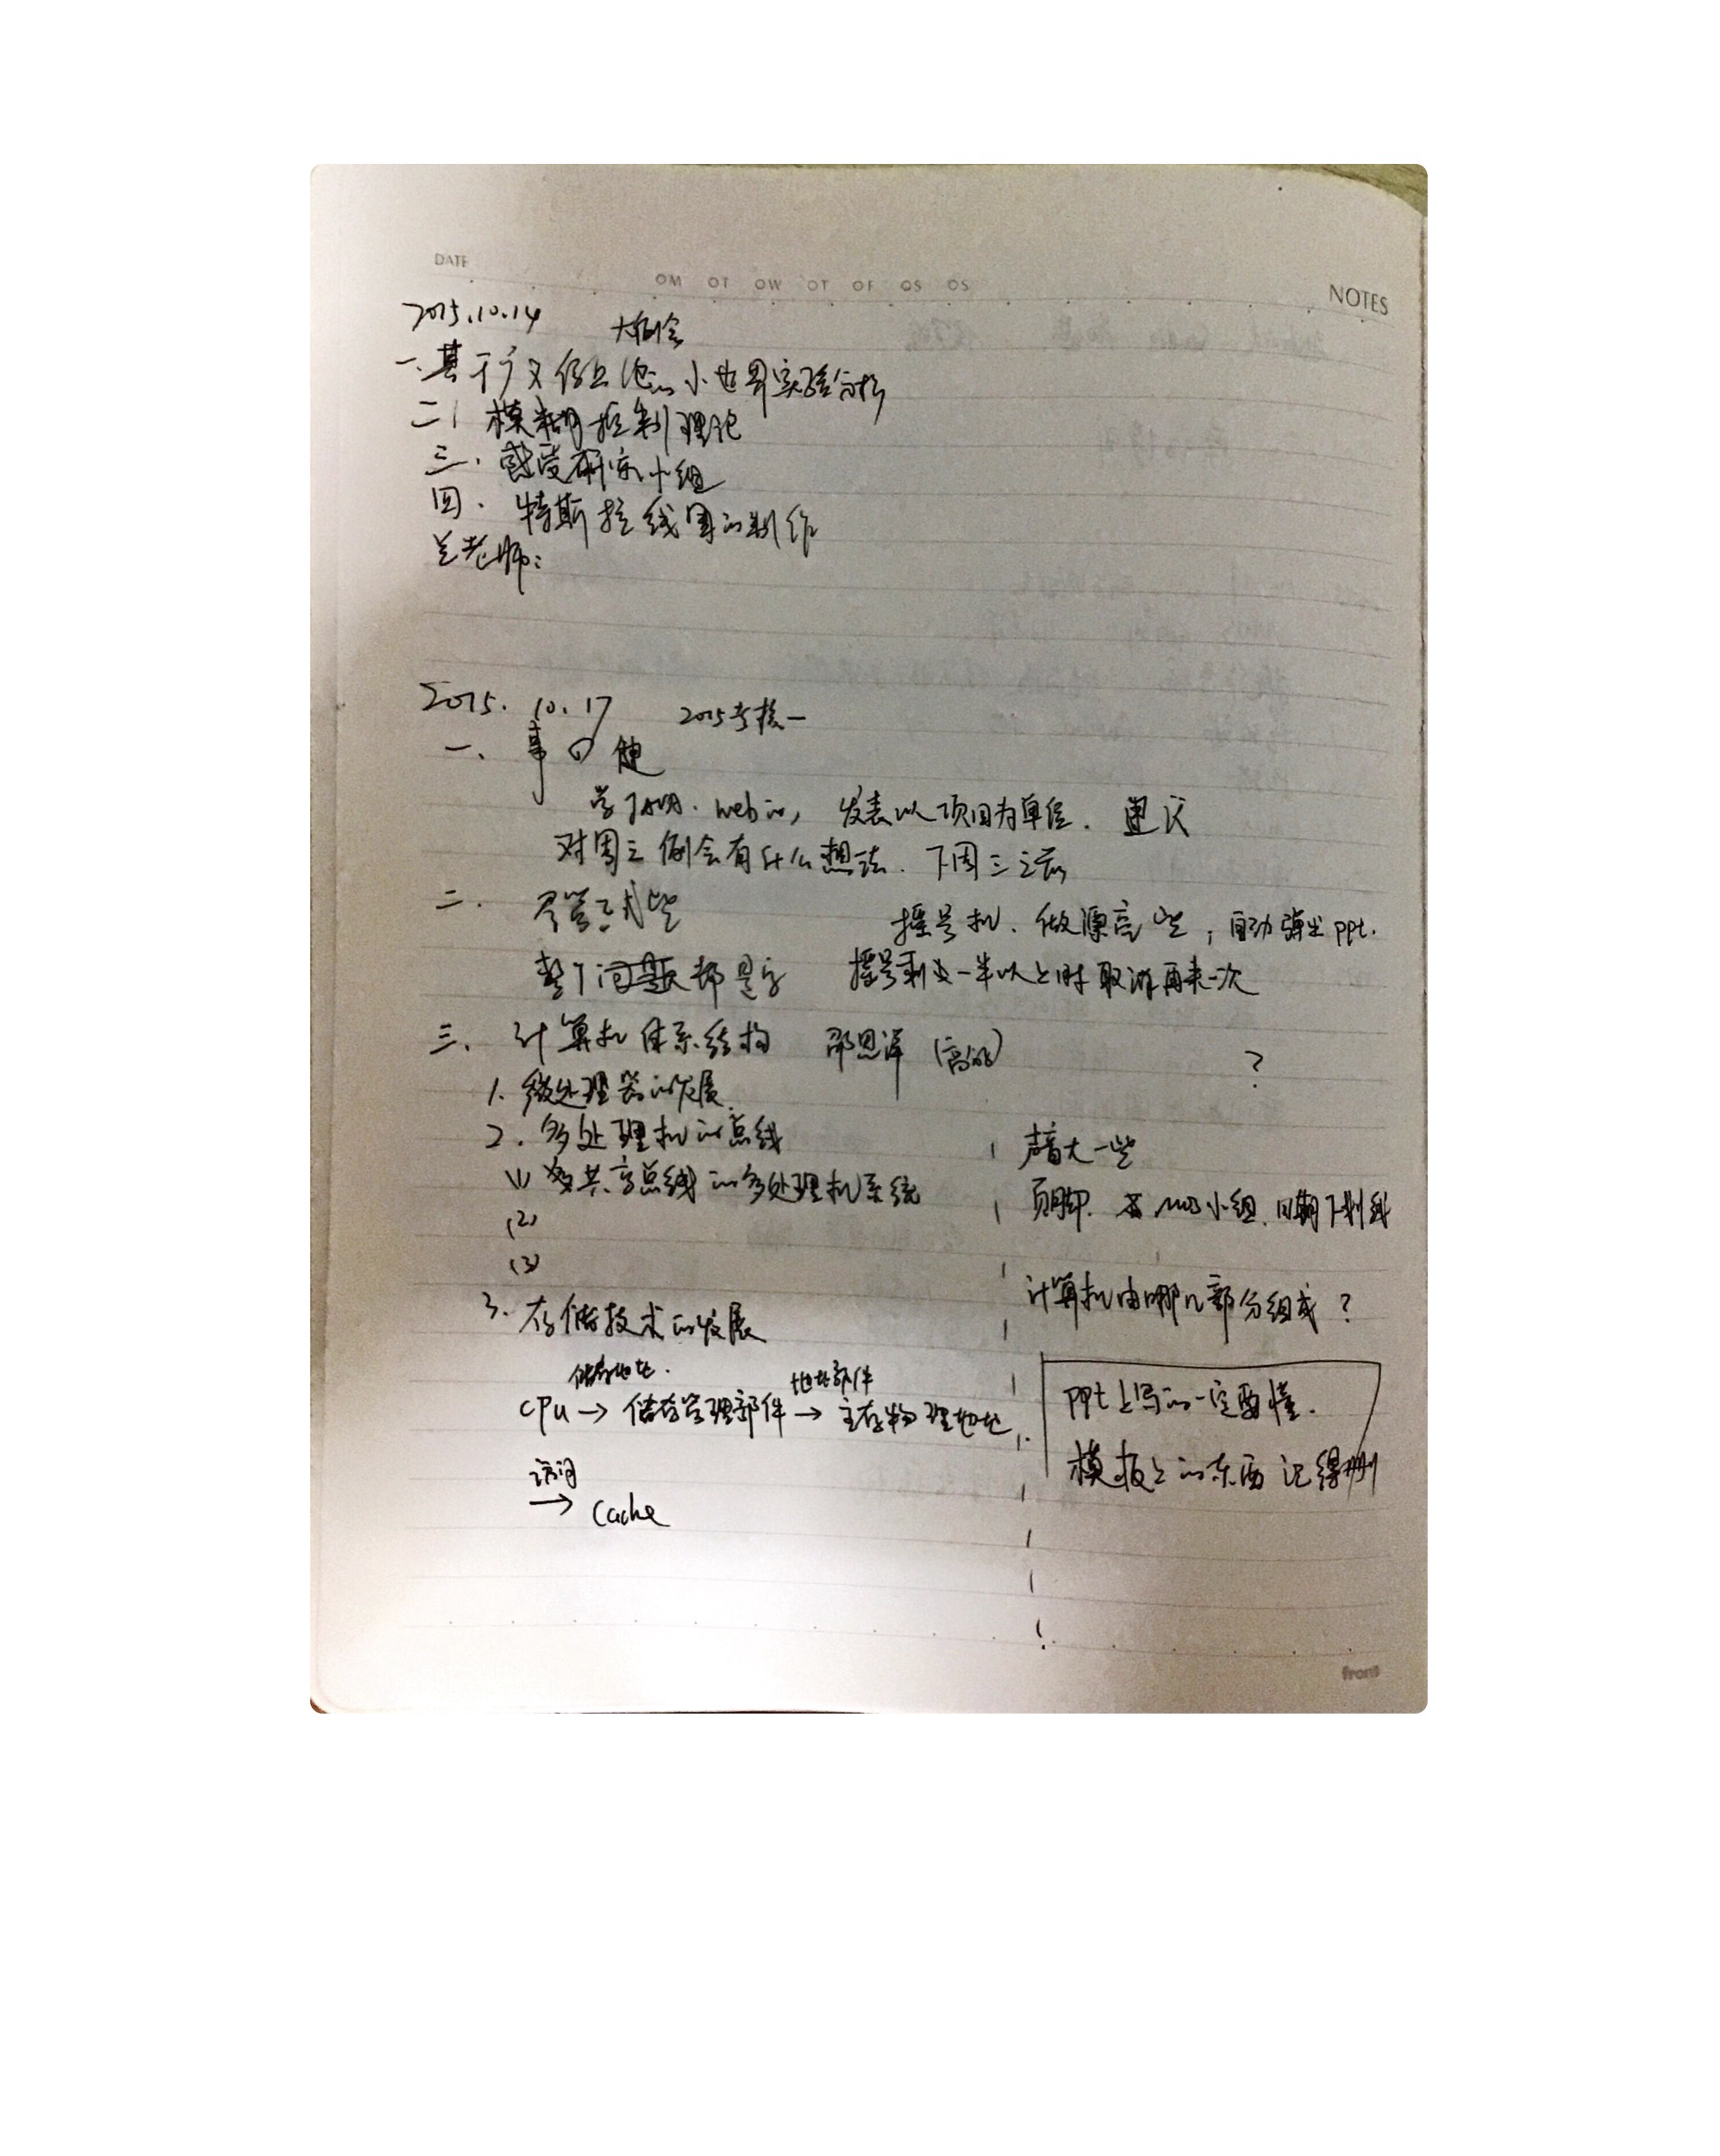 DATE
OM OT OW OT OF OS OS
NOTES
2015.10.14 大例会
一.基于广义信息论的小世界实验分析
二. 模糊控制理论
三. 感受研究小组
四. 特斯拉线圈的制作
老师:
2015. 10. 17 2015考核一
一.
学 web的, 发表以项目为单位. 建议
对周三例会有什么想法. 下周三之前
二. 尽管试些
摇号机. 做漂亮些, 自动弹出ppt.
整个问题都是字
摇号剩下一半以上时取消再来一次
三. 计算机体系结构 邵思洋
?
1. 微处理器的发展.
2. 多处理机的总线
(1) 共享总线的多处理机系统
(2)
(3)
3. 存储技术的发展
储存地址. 地址部件
CPU → 储存管理部件 → 主存物理地址.
访问
→ Cache
声音大一些
页脚. 小组. 日期下划线
计算机由哪几部分组成?
PPt上写的一定要懂.
模板上的东西记得删
front